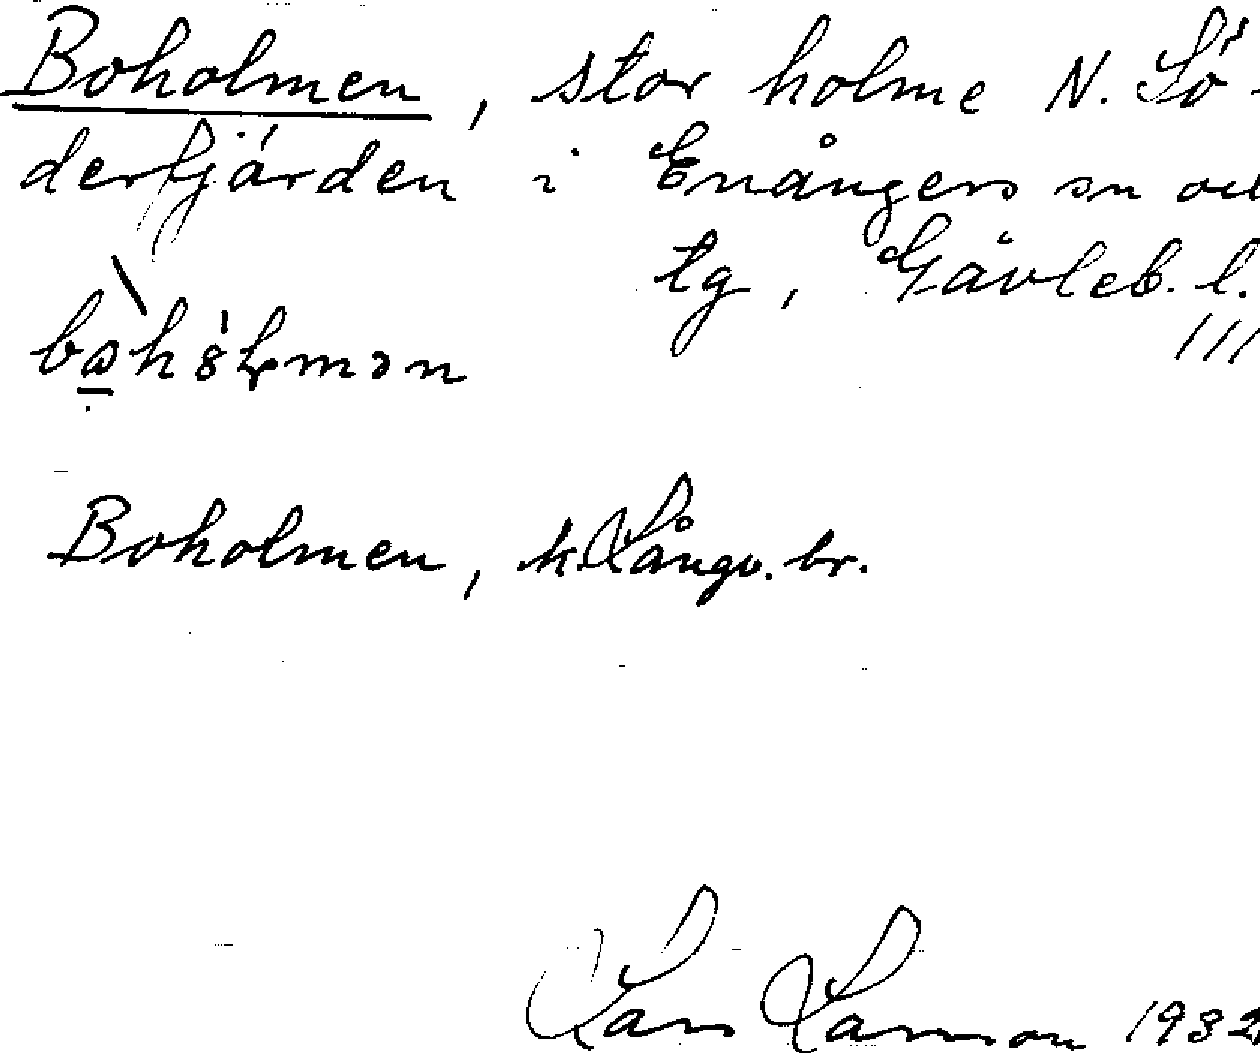 Boholmen, stor holme N. Sö-
derfjärden i Enångers sn och
tg, Gävleb. l.
Boholmen, k. Långv. br.
Lars Larsson 1932